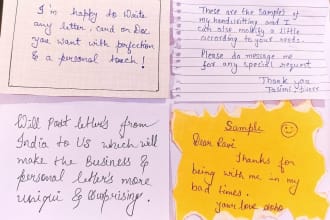 I'm happy to write
any letter, card or Doc
you want with perfection
& a personal touch!
These are the samples of
my handwriting and I
can also modify a little
according to your needs.
Please do message me
for any special request
Thank you
Will Post letters from
India to US which will
make the Business &
personal letters more
unique & surprising.
Sample
Dear Ravi
Thanks for
being with me in my
bad times.
your love